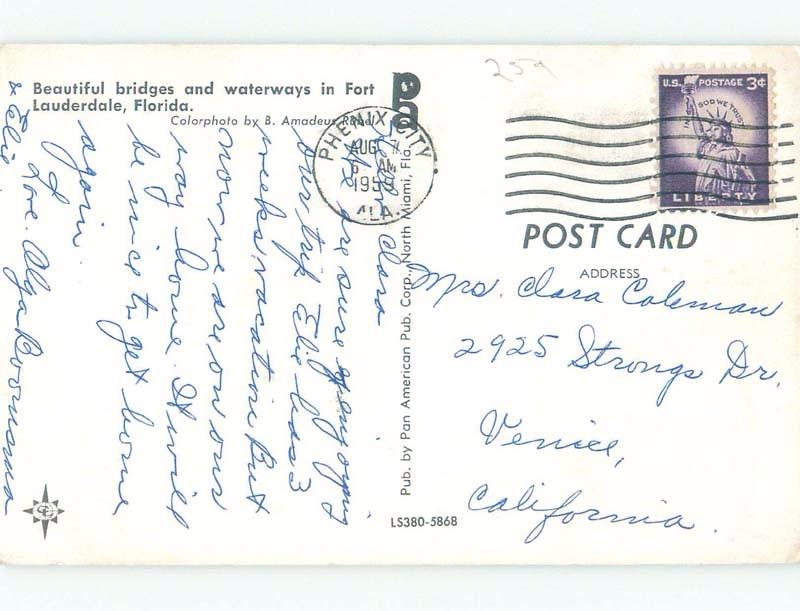 259
Beautiful bridges and waterways in Fort
Lauderdale, Florida.
Colorphoto by B. Amadeus Rubel
PHENIX CITY
AUG 7
6 AM
1959
ALA.
U.S. POSTAGE 3¢
IN GOD WE TRUST
LIBERTY
POST CARD
ADDRESS
Mrs. Clara Coleman
2925 Strongs Dr.
Venice,
California.
Pub. by Pan American Pub. Corp., North Miami, Fla.
LS380-5868
Dear Clara
We are sure enjoying
our trip Elie has 3
weeks vacation But
now we are on our
way home. It will
be nice to get home
again.
Love. Alga Boomsma
& Elie